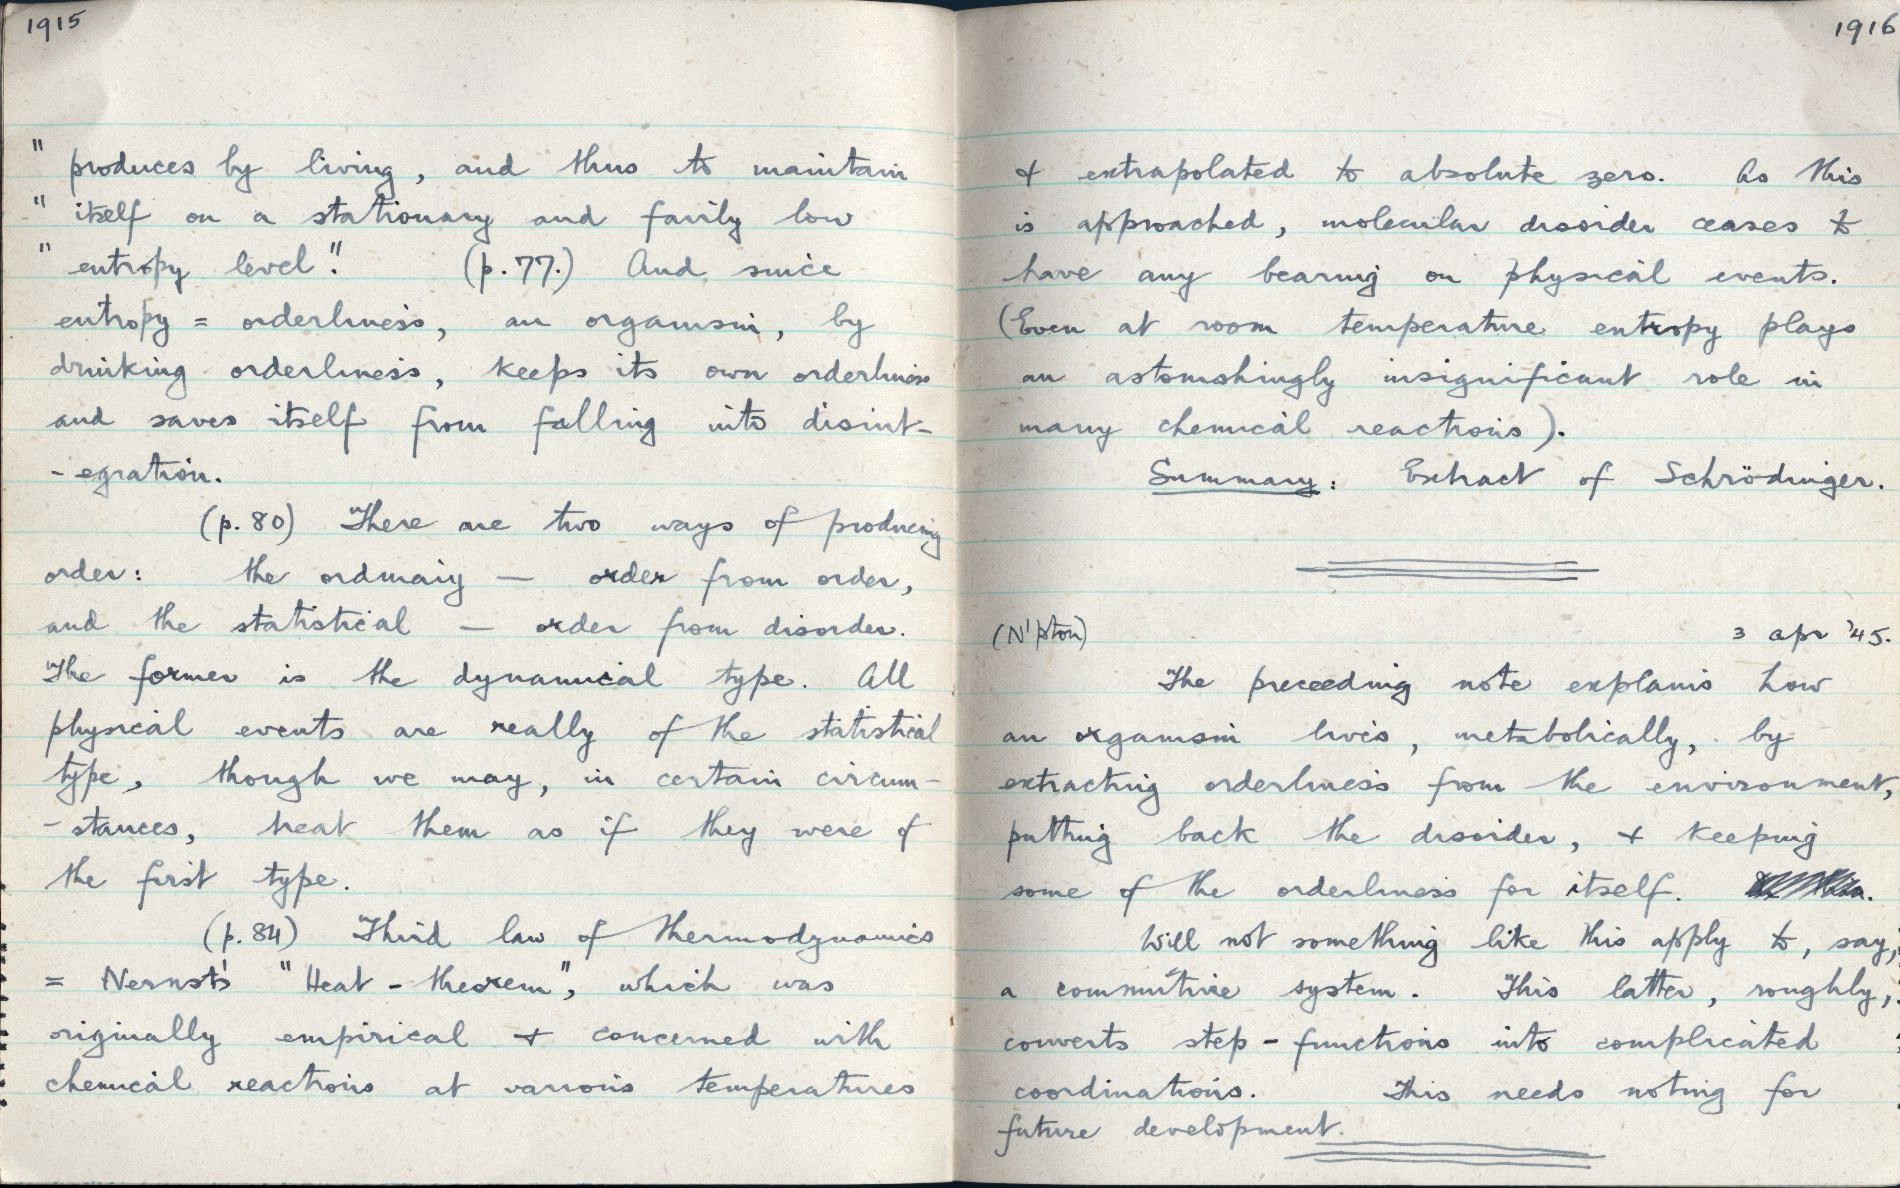 1915
" produces by living, and thus to maintain
" itself on a stationary and fairly low
" entropy level". (p.77.) And since
entropy = orderliness, an organism, by
drinking orderliness, keeps its own orderliness
and saves itself from falling into disint-
- egration.
(p. 80) There are two ways of producing
order: the ordinary — order from order,
and the statistical — order from disorder.
The former is the dynamical type. All
physical events are really of the statistical
type, though we may, in certain circum-
- stances, treat them as if they were of
the first type.
(p. 84) Third law of thermodynamics
= Nernst's "Heat - theorem", which was
originally empirical & concerned with
chemical reactions at various temperatures
1916
& extrapolated to absolute zero. As this
is approached, molecular disorder ceases to
have any bearing on physical events.
(Even at room temperature entropy plays
an astonishingly insignificant role in
many chemical reactions).
Summary: Extract of Schrödinger.
(N'pton) 3 apr '45.
The preceeding note explains how
an organism lives, metabolically, by
extracting orderliness from the environment,
putting back the disorder, & keeping
some of the orderliness for itself.
Will not something like this apply to, say,
a system. This latter, roughly,
converts step - functions into complicated
coordinations. This needs noting for
future development.